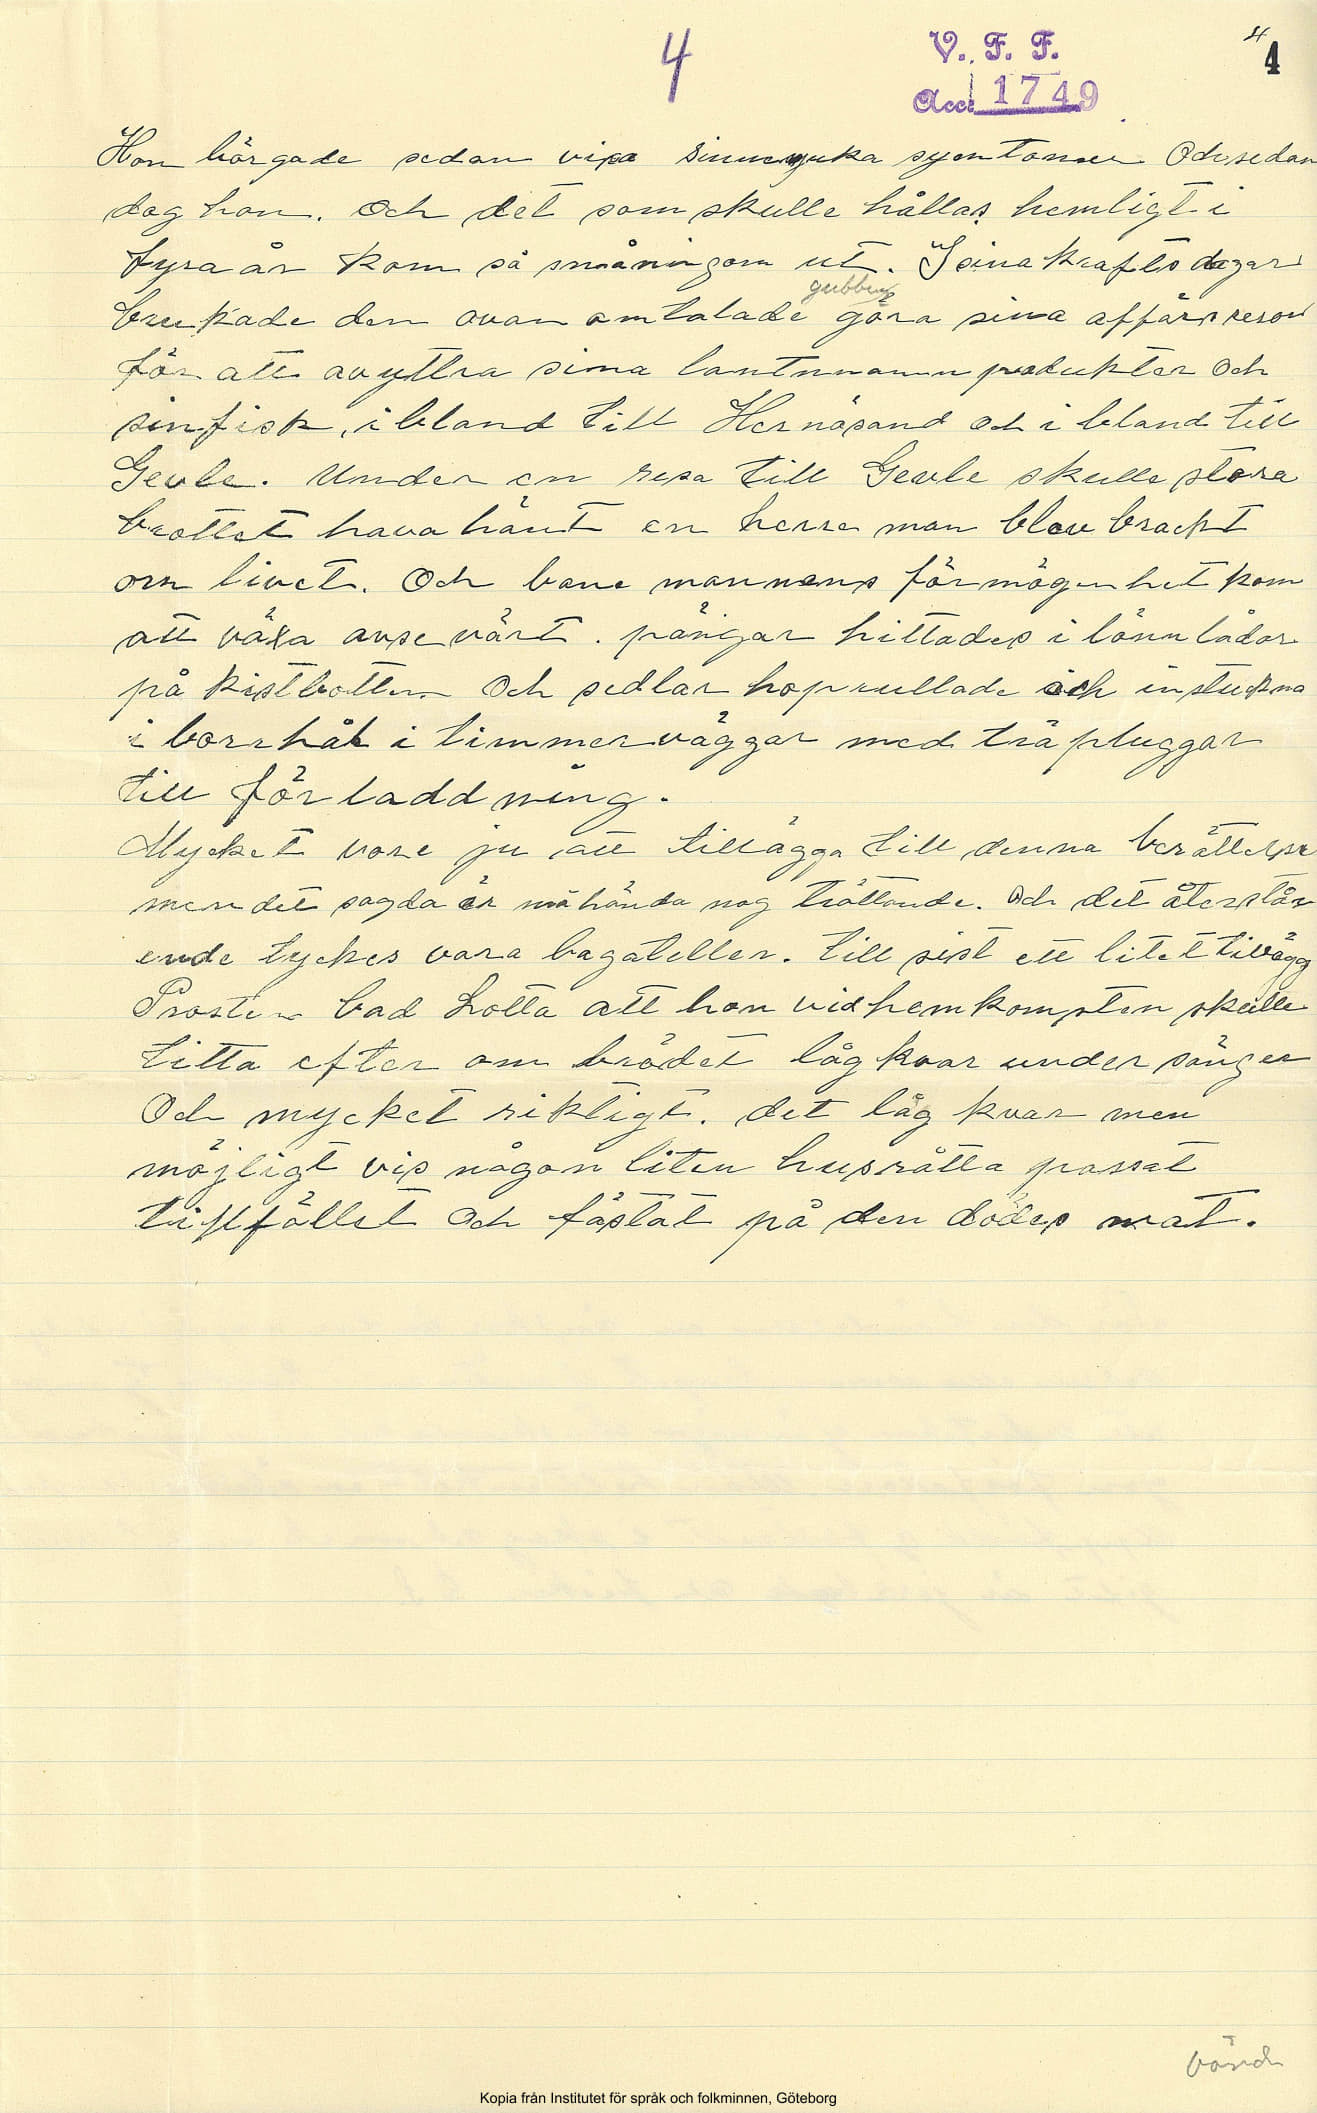 4
V. F. F.
Acc. 1749
4
4
Hon börgade sedan visa sinnesyuka symtomer Och sedan
dog hon. Och det som skulle hållas hemligt i
fyra år kom så småningom ut. I sina krafts dagar
gubben
brukade den ovan omtalade göra sina affärs resor
för att avyttra sina lantmanna produkter och
sin fisk, i bland till Hernösand och i bland till
Gevle. Under en resa till Gevle skulle stora
brottet hava hänt en herre man blev brackt
om livet. Och bane mannens förmögenhet kom
att växa avse värt. pängar hittades i lönnlådor
på kistbotten Och sedlar hoprullade och instuckna
i borrhål i timmerväggar med träpluggar
till förladdning.
Mycket vore ju att tillägga till denna berättelse
men det sagda är måhända nog tröttande. Och det återstå
ende tyckes vara bagateller. till sist ett litet tillägg
Prosten bad Lotta att hon vid hemkomsten skulle
titta efter om brödet låg kvar under sängen
Och mycket riktigt. det låg kvar men
möjligt vis någon liten husråtta passat
tillfället Och fästat på den dödes mat.
vänd
Kopia från Institutet för språk och folkminnen, Göteborg